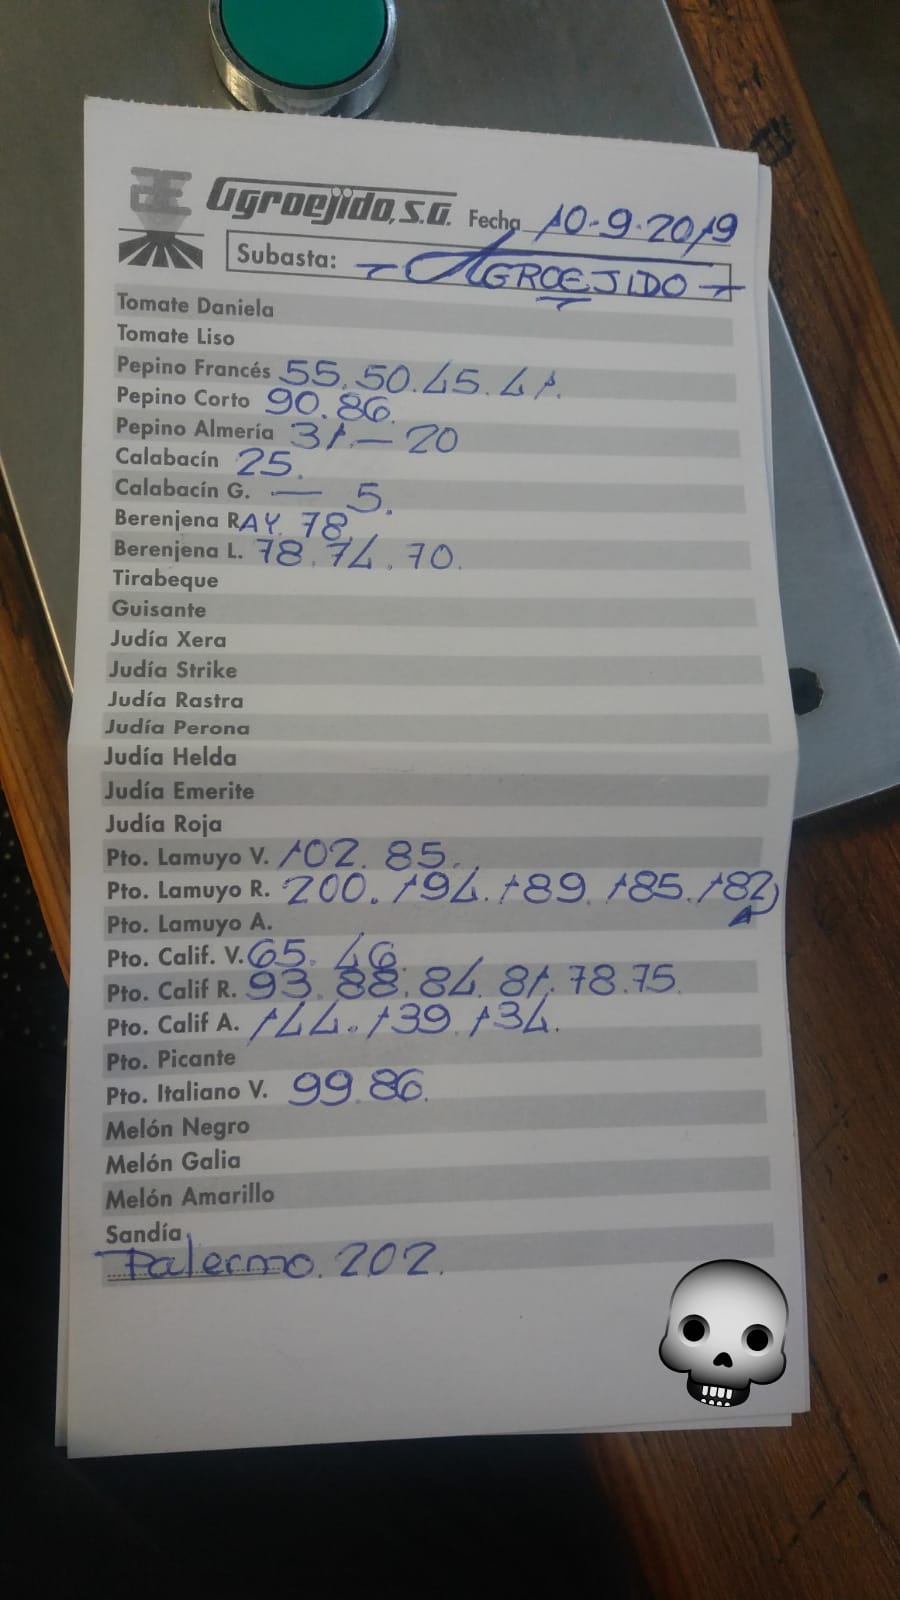 Agroejido, S.A. Fecha 10-9-2019
Subasta: - AGROEJIDO -
Tomate Daniela
Tomate Liso
Pepino Francés 55. 50. 45. 41.
Pepino Corto 90. 86.
Pepino Almería 31. — 20
Calabacín 25.
Calabacín G. — 5.
Berenjena RAY. 78
Berenjena L. 78. 74. 70.
Tirabeque
Guisante
Judía Xera
Judía Strike
Judía Rastra
Judía Perona
Judía Helda
Judía Emerite
Judía Roja
Pto. Lamuyo V. 102. 85.
Pto. Lamuyo R. 200. 194. 189. 185. 182
Pto. Lamuyo A.
Pto. Calif. V. 65. 46
Pto. Calif R. 93. 88. 84. 81. 78. 75.
Pto. Calif A. 144. 139. 134.
Pto. Picante
Pto. Italiano V. 99. 86.
Melón Negro
Melón Galia
Melón Amarillo
Sandía
Palermo. 202.